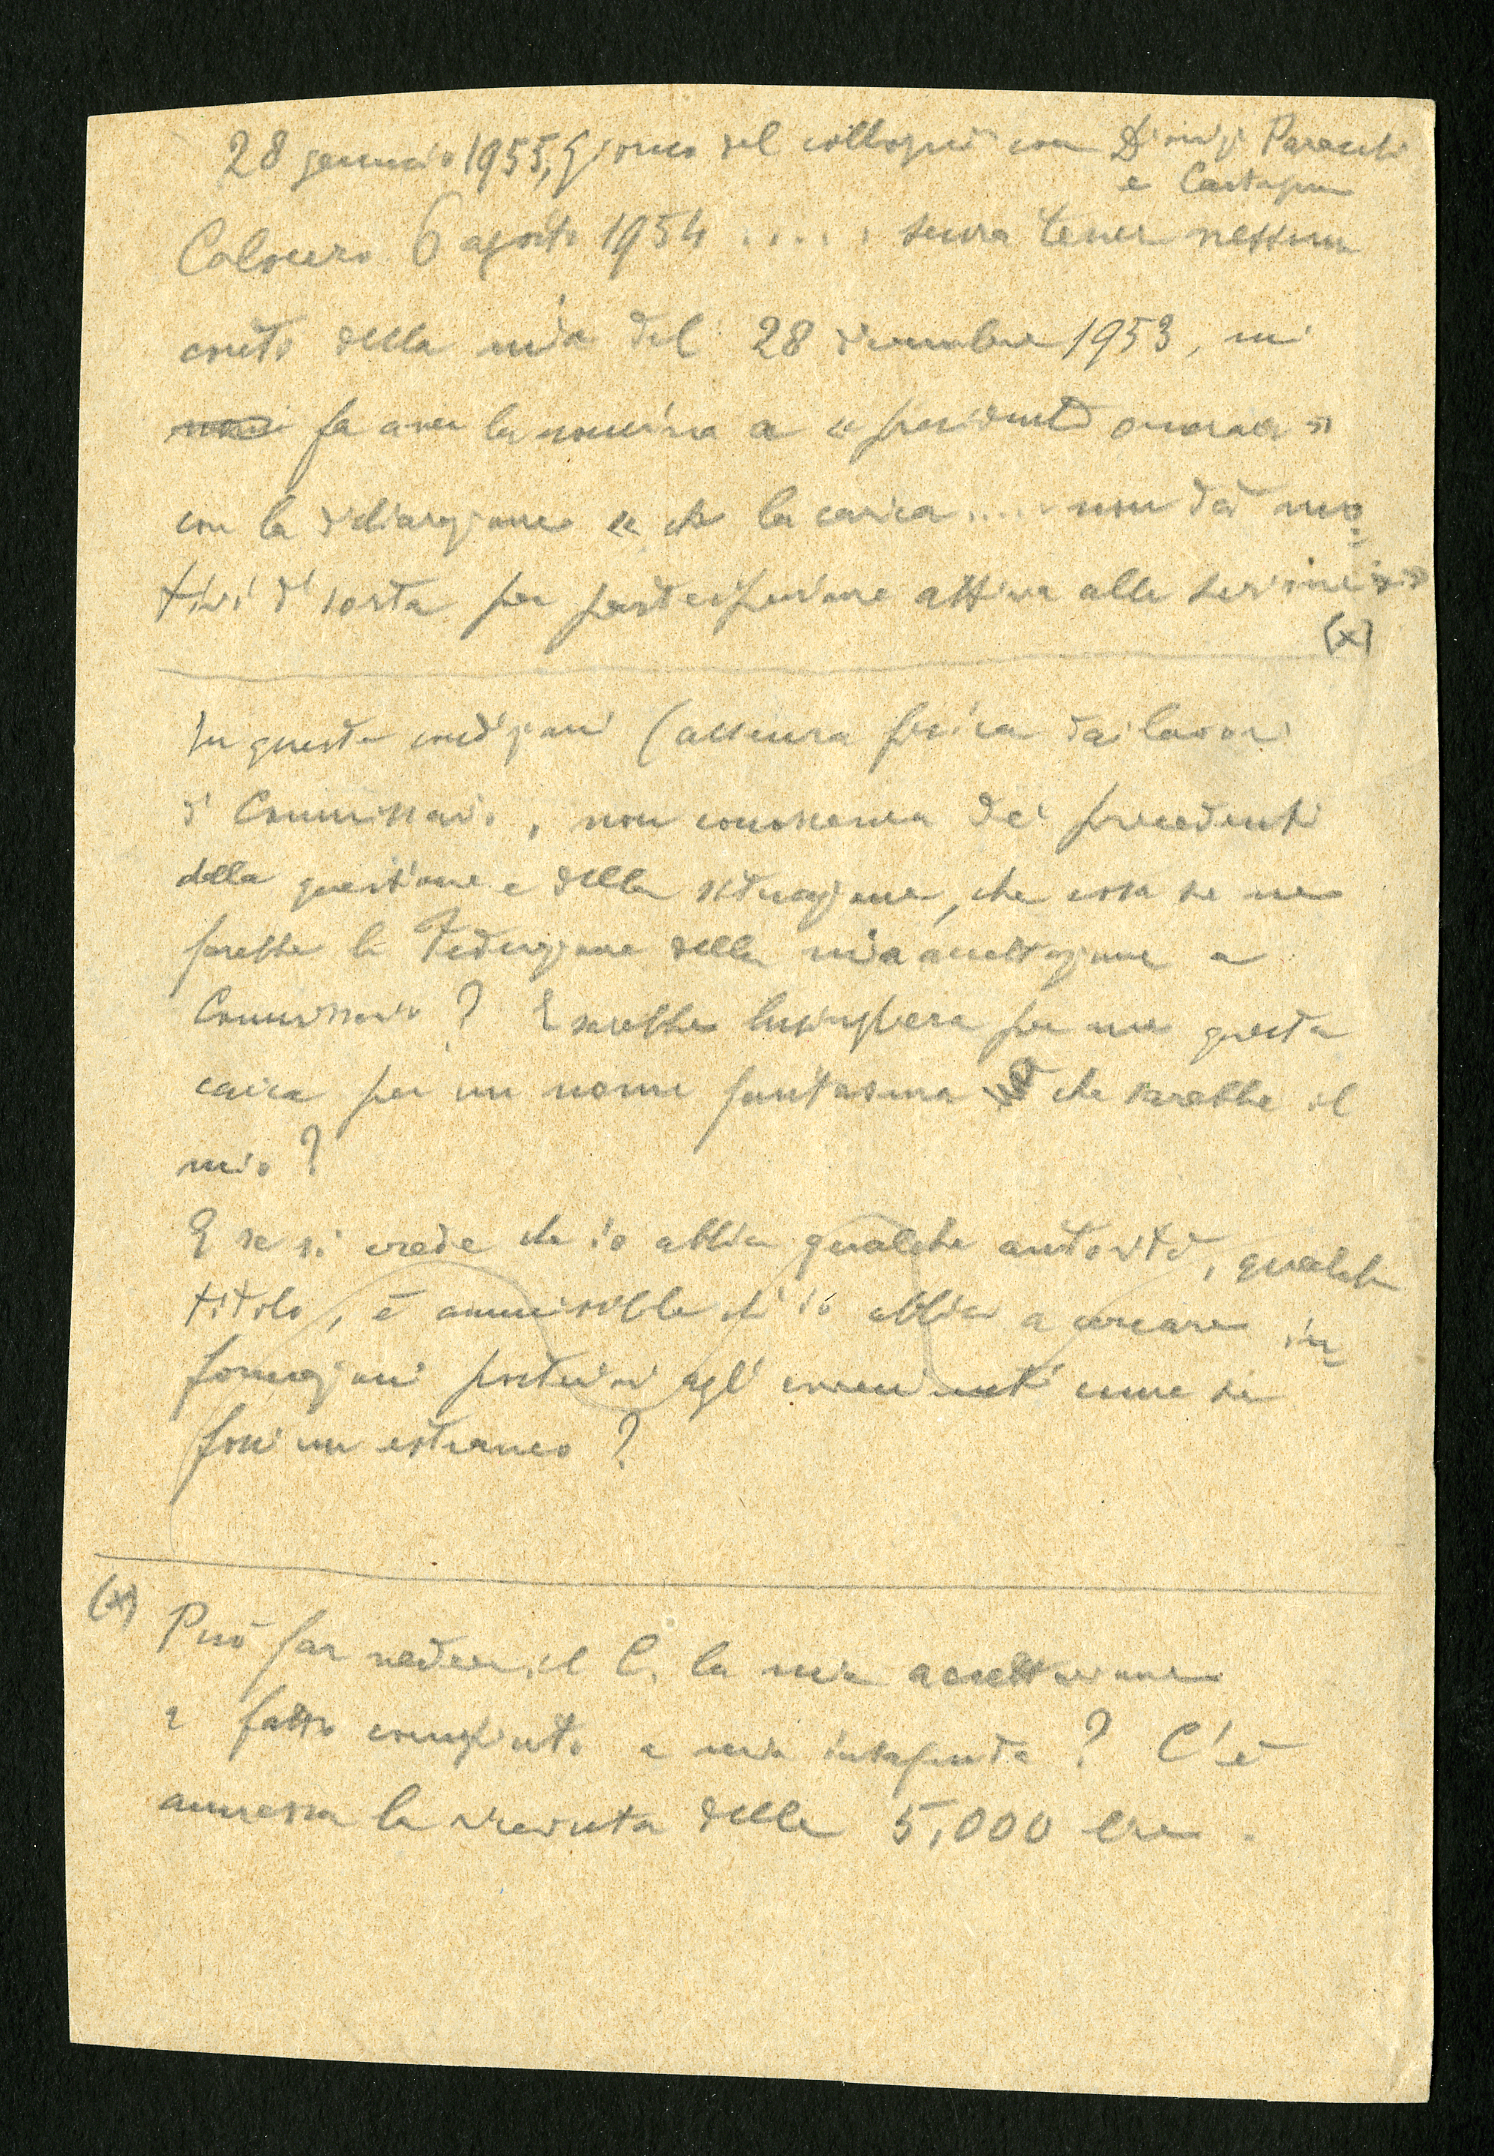 28 gennaio 1955, giorno del colloquio con Dionigi Paracuti
e Castagna
Calogero 6 agosto 1954 ..... senza tener nessun
conto della mia del 28 dicembre 1953, mi
fa aver la nomina a « presidente onorario »
con la dichiarazione « che la carica .... non dà mo=
tivi di sorta per partecipazione attiva alle
(x)
In queste condizioni (assenza fisica dai lavori
di Commissario, non conoscenza dei precedenti
della questione e della situazione, che cosa se ne
farebbe la Federazione della mia accettazione a
Commissario? E sarebbe lusinghiera per me questa
carica per un nome fantasma che sarebbe il
mio?
E se si crede che io abbia qualche autorità, qualche
titolo, è ammissibile ch'io abbia a cercare in=
formazioni posteriori agli avvenimenti come se
fossi un estraneo?
(x) Può far vedere il C. la mia accettazione
a fatto compiuto a mia insaputa? C'è
ammessa la ricevuta delle 5.000 lire.